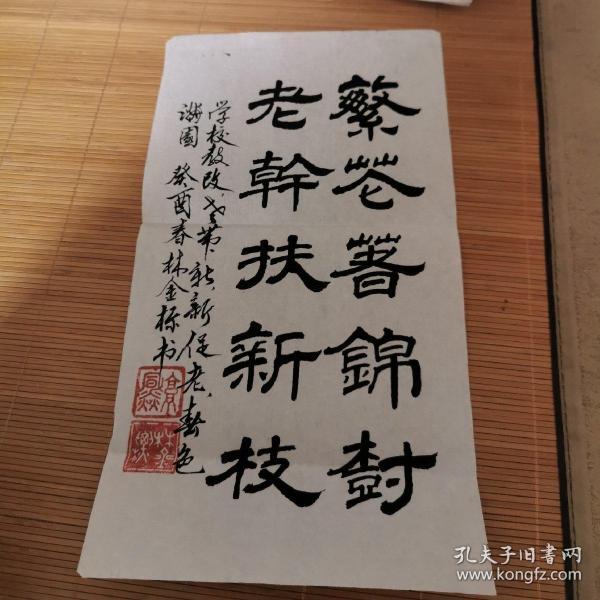 繁花著錦樹
老幹扶新枝
学校教改，老带新，新促老，春色
满園 癸酉春林金标书
孔夫子旧書网
www.kongfz.com